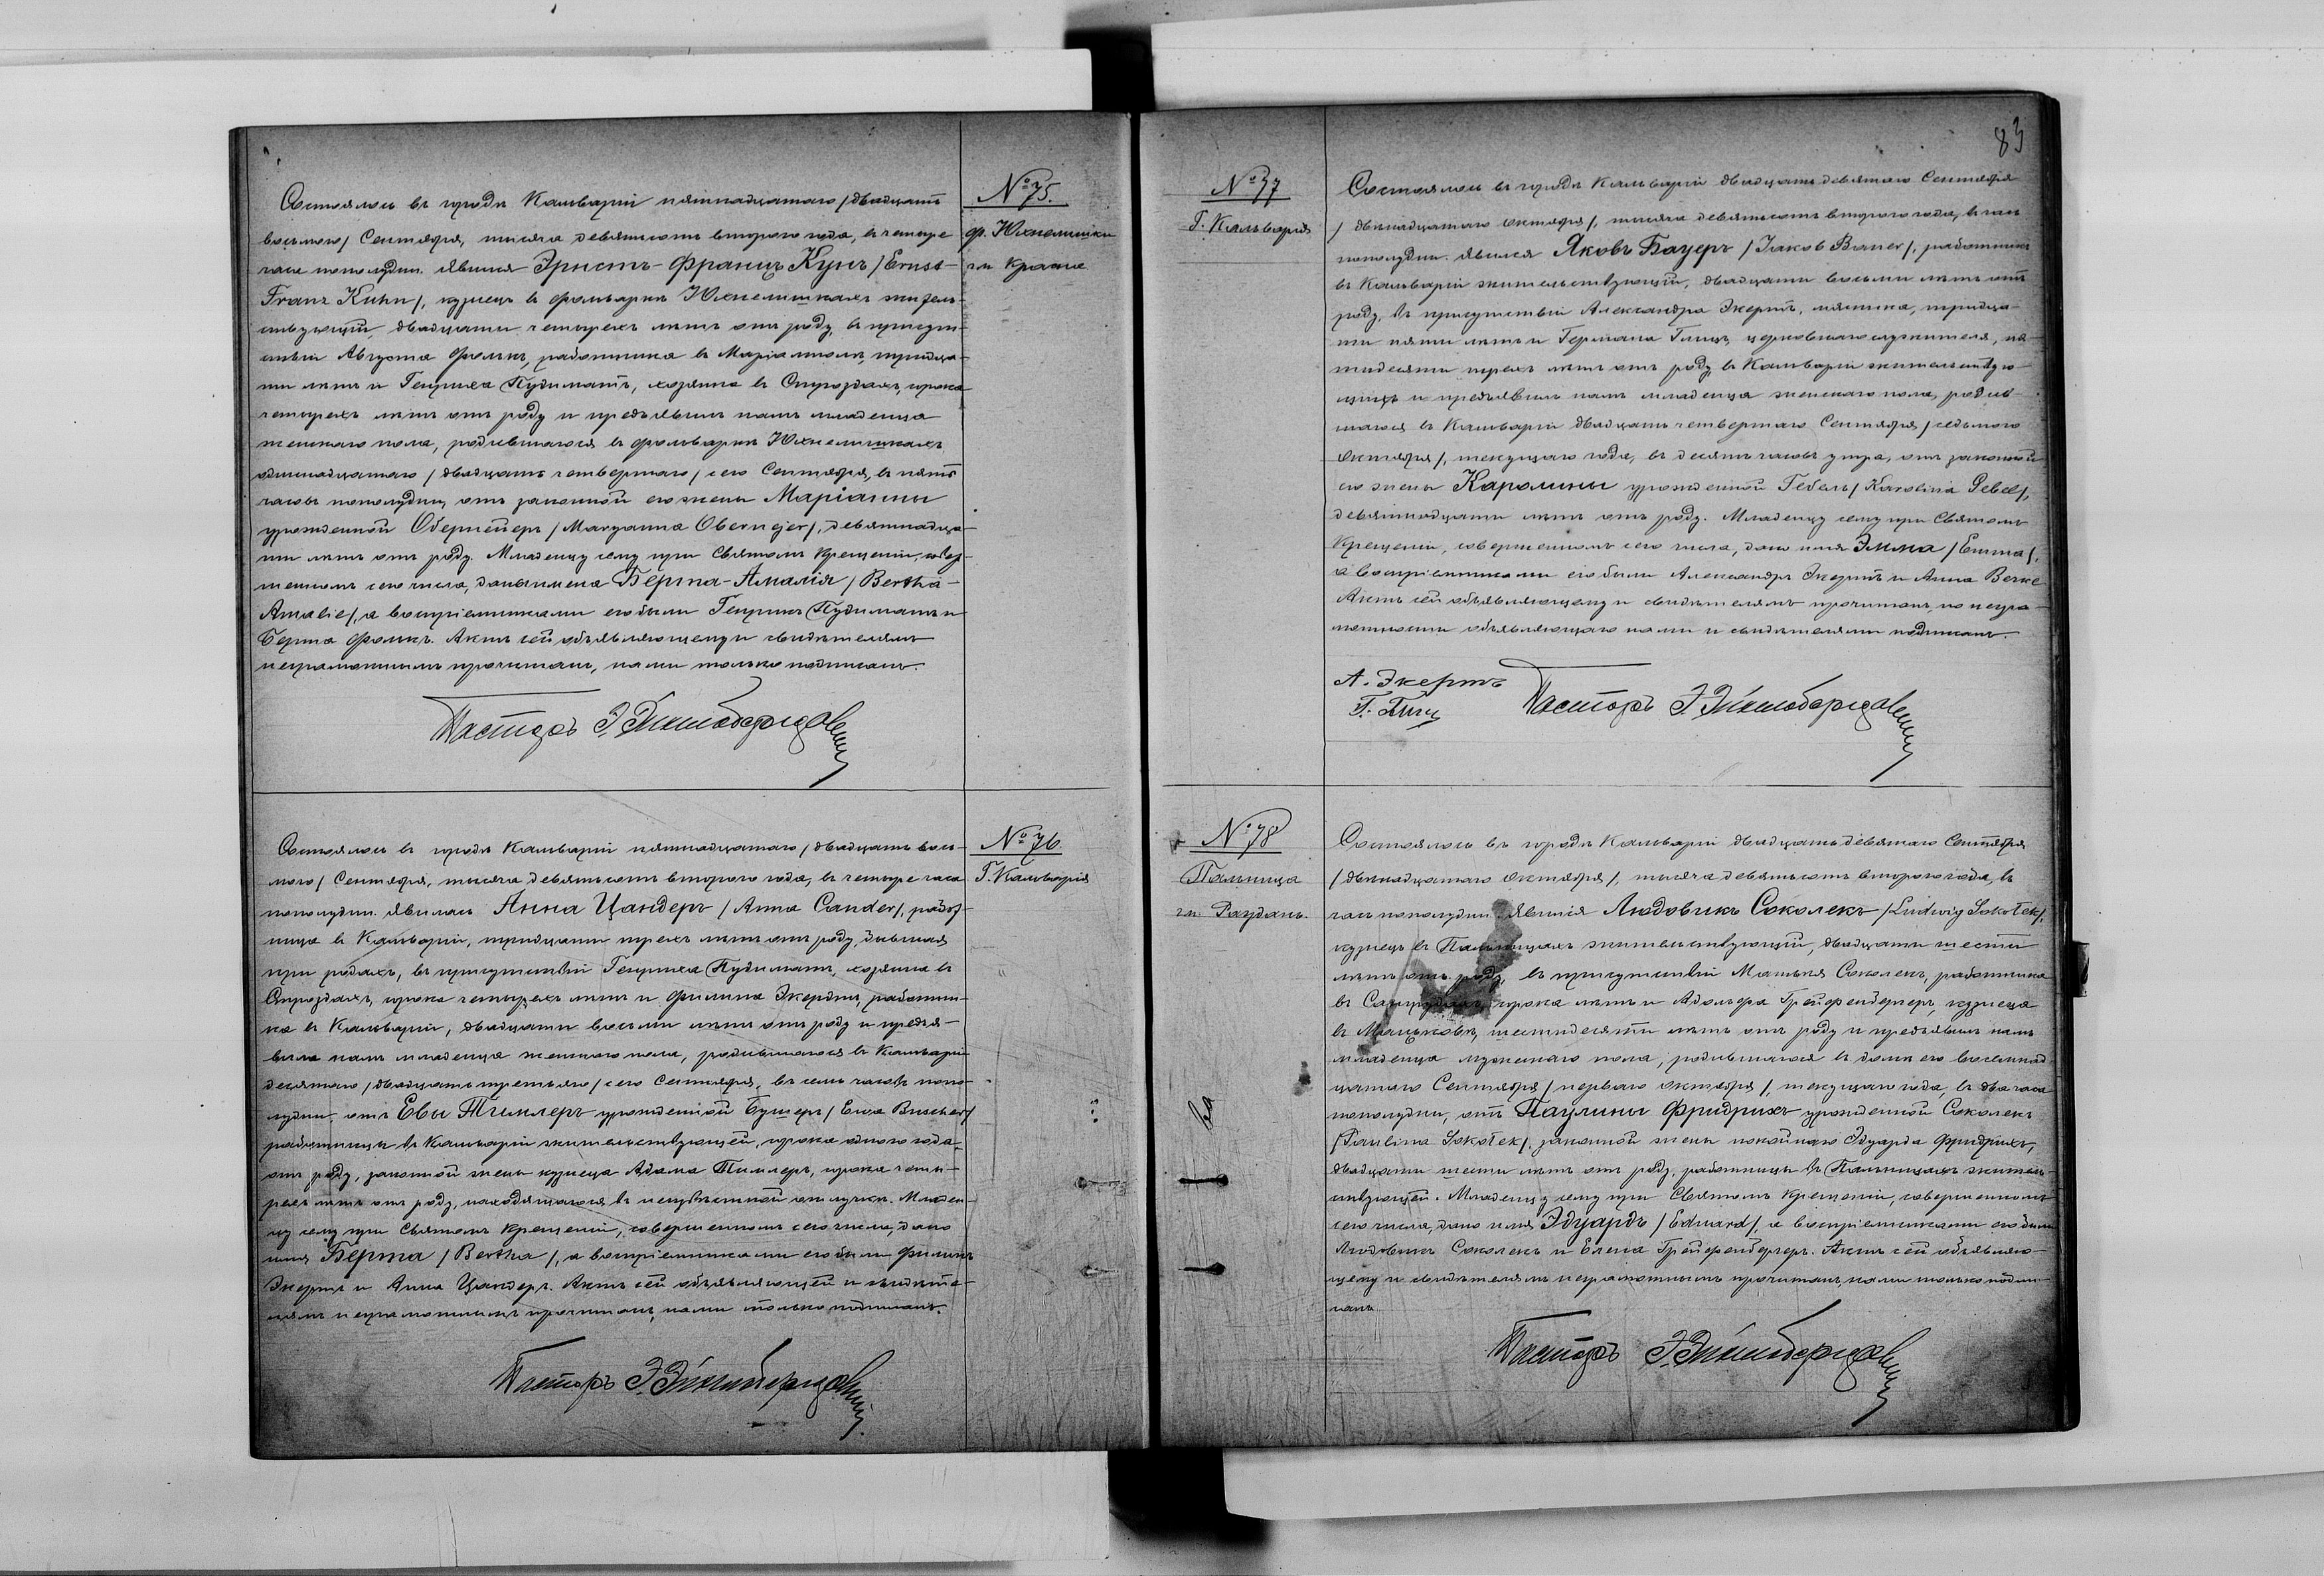 № 75.
ф. Юхнелишки
гм. Красна
Состоялось въ городѣ Кальваріи пятнадцатаго /двадцать
восьмого/ Сентября, тысяча девятьсотъ второго года, въ четыре
часа пополудни. Явился Эрнстъ-Францъ Кунъ /Ernst-
Franz Kuhn/, кузнецъ въ фольваркѣ Юхнелишкахъ житель-
ствующій, двадцати четырехъ лѣтъ отъ роду, въ присут-
ствіи Августа Фолькъ, работника въ Маріамполѣ, тридца-
ти лѣтъ и Генриха Пудиматъ, хозяина въ Опроздахъ, сорока
четырехъ лѣтъ отъ роду и предъявилъ намъ младенца
женскаго пола, родившагося въ фольваркѣ Юхнелишкахъ
одиннадцатаго /двадцать четвертаго/ сего Сентября, въ пять
часовъ пополудни, отъ законной его жены Маріанны
урожденной Обернейеръ /Maryanna Obernejer/, девятнадца-
ти лѣтъ отъ роду. Младенцу сему при Святомъ Крещеніи, совер-
шенномъ сего числа, даны имена Берта-Амалія /Bertha-
Amalie/, а воспріемниками его были Генрихъ Пудиматъ и
Берта Фолькъ. Актъ сей объявляющему и свидѣтелямъ
неграмотнымъ прочитанъ, нами только подписанъ.
Пасторъ Э.
№ 76.
Г. Кальварія
Состоялось въ городѣ Кальваріи пятнадцатаго /двадцать вось-
мого/ Сентября, тысяча девятьсотъ второго года, въ четыре часа
пополудни. Явилась Анна Цандеръ /Anna Cander/, работ-
ница въ Кальваріи, тридцати трехъ лѣтъ отъ роду, бывшая
при родахъ, въ присутствіи Генриха Пудиматъ, хозяина въ
Опроздахъ, сорока четырехъ лѣтъ и Филипа Экердтъ, работни-
ка въ Кальваріи, двадцати восьми лѣтъ отъ роду и предъя-
вила намъ младенца женскаго пола, родившагося въ Кальваріи
десятаго /двадцать третьяго/ сего Сентября, въ семь часовъ попо-
лудни, отъ Евы Тимлеръ урожденной Бушеръ /Ewa Buscher/
работницы въ Кальваріи жительствующей, сорока одного года
отъ роду, законной жены кузнеца Адама Тимлеръ, сорока четы-
рехъ лѣтъ отъ роду, находящагося въ неизвѣстной отлучкѣ. Младен-
цу сему при Святомъ Крещеніи, совершенномъ сего числа, дано
имя Берта /Bertha/, а воспріемниками его были Филипъ
Экертъ и Анна Цандеръ. Актъ сей объявляющей и свидѣте-
лямъ неграмотнымъ прочитанъ, нами только подписанъ.
Пасторъ Э.
83
№ 77
Г. Кальварія
Состоялось въ городѣ Кальваріи двадцать девятаго Сентября
/двѣнадцатаго Октября/, тысяча девятьсотъ второго года, въ часъ
пополудни. Явился Яковъ Бауеръ /Jakob Bauer/, работникъ
въ Кальваріи жительствующій, двадцати восьми лѣтъ отъ
роду, въ присутствіи Александра Экертъ, мясника, тридца-
ти пяти лѣтъ и Германа Глицъ, церковнаго служителя, пя-
тидесяти трехъ лѣтъ отъ роду, въ Кальваріи жительствую-
щихъ и предъявилъ намъ младенца женскаго пола, родив-
шагося въ Кальваріи двадцать четвертаго Сентября /седьмого
Октября/, текущаго года, въ десять часовъ утра, отъ законной
его жены Каролины урожденной Гебель /Karolina Gebel/,
девятнадцати лѣтъ отъ роду. Младенцу сему при Святомъ
Крещеніи, совершенномъ сего числа, дано имя Эмма /Emma/,
а воспріемниками его были Александръ Экертъ и Анна Верке
Актъ сей объявляющему и свидѣтелямъ прочитанъ, по негра-
мотности объявляющаго нами и свидѣтелями подписанъ.
А. Экертъ
Г. Глиц
Пасторъ Э.
№ 78
Пальница
гм. Раудань.
Состоялось въ городѣ Кальваріи двадцать девятаго Сентября
/двѣнадцатаго Октября/, тысяча девятьсотъ второго года, въ
часъ пополудни. Явился Людовикъ Соколекъ /Ludwig Sokołek/,
кузнецъ въ Пальницахъ жительствующій, двадцати шести
лѣтъ отъ роду, въ присутствіи Матвѣя Соколекъ, работника
въ сорока лѣтъ и Адольфа Грейфенбергеръ, кузнеца
въ шестидесяти лѣтъ отъ роду и предъявилъ намъ
младенца мужескаго пола, родившагося въ домѣ его восемнад-
цатаго Сентября /перваго Октября/, текущаго года, въ два часа
пополудни, отъ Паулины Фридрихъ урожденной Соколекъ
/Paulina Sokołek/, законной жены покойнаго Эдуарда Фридрихъ,
двадцати шести лѣтъ отъ роду, работницы въ Пальницахъ житель-
ствующей. Младенцу сему при Святомъ Крещеніи, совершенномъ
сего числа, дано имя Эдуардъ /Eduard/, а воспріемниками его были
Людовикъ Соколекъ и Елена Грейфенбергеръ. Актъ сей объявляю-
щему и свидѣтелямъ неграмотнымъ прочитанъ, нами только подпи-
санъ
Пасторъ Э.